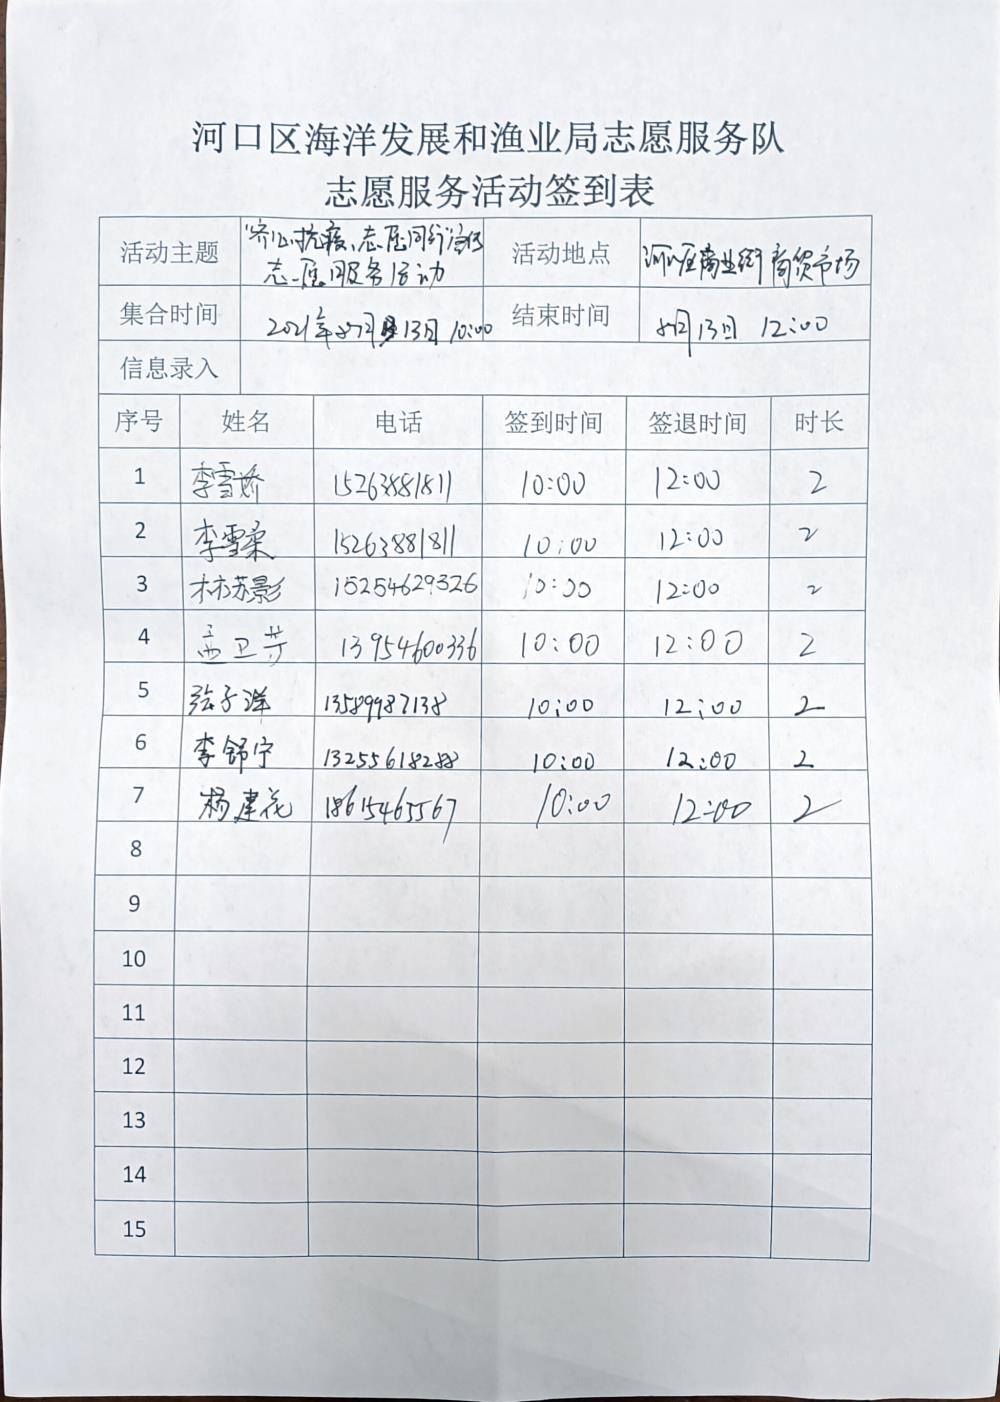 河口区海洋发展和渔业局志愿服务队
志愿服务活动签到表
活动主题 "齐心抗疫、志愿同行" 活动地点 河口区商业街商贸市场
志愿服务活动
集合时间 2021年 月13日 10:00 结束时间 月13日 12:00
信息录入
序号 姓名 电话 签到时间 签退时间 时长
1 李雪娇 15263881811 10:00 12:00 2
2 李雪柔 15263881811 10:00 12:00 2
3 林苏影 15254629326 10:00 12:00 2
4 孟卫芳 13954600336 10:00 12:00 2
5 张子洋 13589987138 10:00 12:00 2
6 李舒宁 13255618288 10:00 12:00 2
7 杨建花 18615465567 10:00 12:00 2
8
9
10
11
12
13
14
15